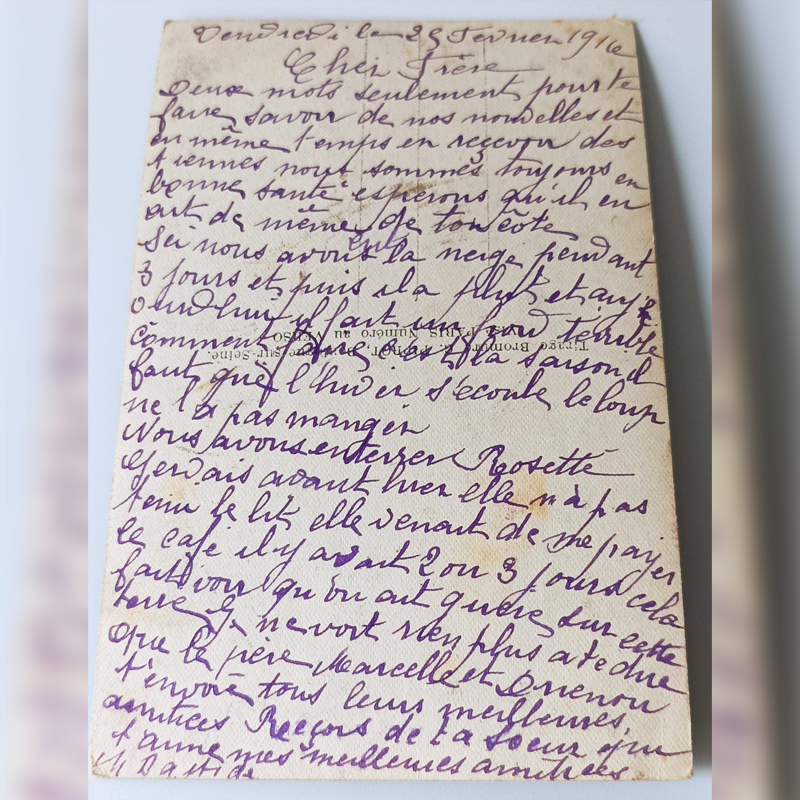 Vendredi le 25 Fevrier 1916
Cher Frère
Deux mots seulement pour te
faire savoir de nos nouvelles et
en même temps en reçevoir des
tiennes nous sommes toujours en
bonne santé esperons qu'il en
ait de même de ton côte
Ici nous avons la neige pendant
3 jours et puis il a plut et auj
ourd'hui il fait un froid terrible
comment faire cest la saison il
faut que l'hiver s'ecoule le loup
ne l'a pas manger
Nous avons enterrer Rosette
Gervais avant hier elle n'a pas
tenu le lit elle venait de me payer
le cafe il y avait 2 ou 3 jours cela
fait voir qu'on ait guere sur cette
terre Je ne voit rien plus a te dire
Que le père Marcelle et
t'envoie tous leurs meilleures
amitices Reçois de ta soeur qui
t'aime mes meilleures amitices
Tirage Bromure
PARIS Numéro au VERSO
sur-Seine.